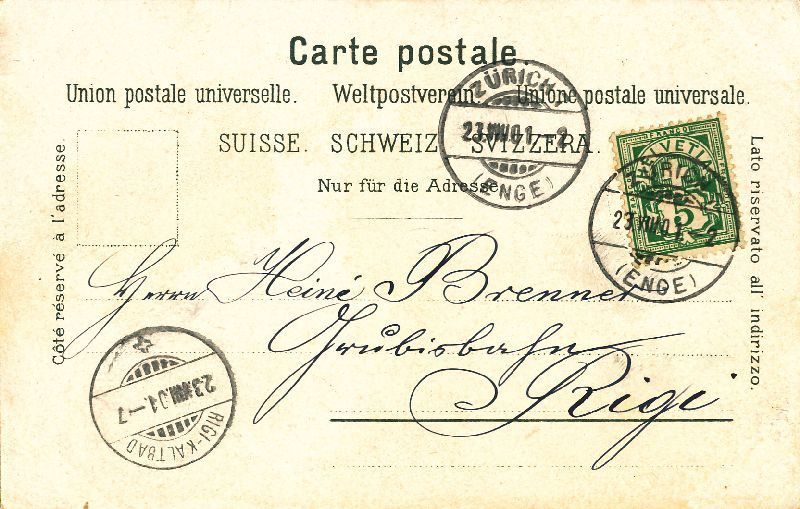 Carte postale.
Union postale universelle. Weltpostverein. Unione postale universale.
SUISSE. SCHWEIZ. SVIZZERA.
Nur für die Adresse
Côté réservé à l'adresse.
Lato riservato all' indirizzo.
ZÜRICH
23.VIII.01.-2
(ENGE)
FRANCO
HELVETIA
5
23.VIII.01.-2
(ENGE)
Herrn Heini Brenner
Grubisbahn
Rigi
23.VIII.01.-7
RIGI-KALTBAD